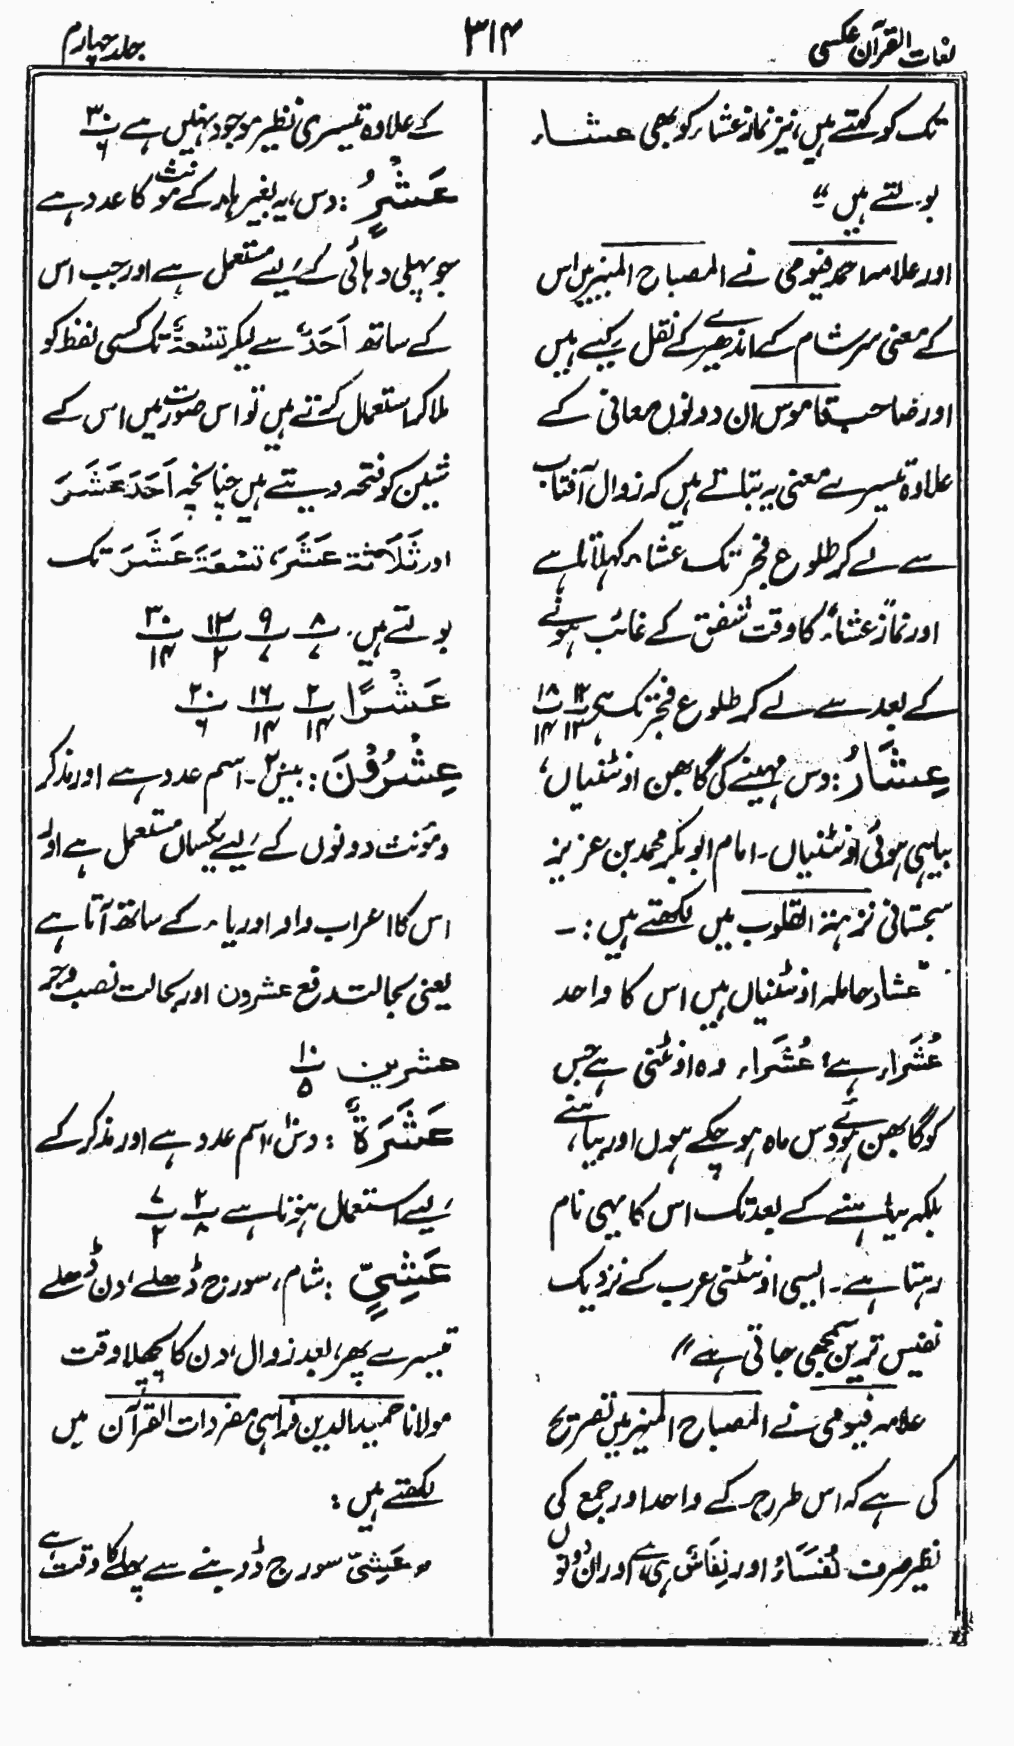 لغات القرآن عکسی
۳۱۴
جلد چہارم
تک کو کہتے ہیں، نیز نماز عشاء کو بھی عشاء
بولتے ہیں"
اور علامہ احمد فیومی نے المصباح المنیر میں اس
کے معنی سر شام کے اندھیرے کے نقل کیے ہیں
اور صاحب قاموس ان دونوں معانی کے
علاوہ تیسرے معنی یہ بتاتے ہیں کہ زوال آفتاب
سے لے کر طلوع فجر تک عشاء کہلاتا ہے
اور نماز عشاء کا وقت شفق کے غائب ہونے
کے بعد سے لے کر طلوع فجر تک ہے ۱۲/۱۳ ۱۸/۱۴
عِشَارُ: دس مہینے کی گابھن اونٹنیاں،
بیاہی ہوئی اونٹنیاں۔ امام ابوبکر محمد بن عزیز
سجستانی نزہۃ القلوب میں لکھتے ہیں :۔
"عشار حاملہ اونٹنیاں ہیں اس کا واحد
عُشَراء ہے، عُشَراء وہ اونٹنی ہے جس
کو گابھن ہوئے دس ماہ ہو چکے ہوں اور بیاہنے،
بلکہ بیاہنے کے بعد تک اس کا یہی نام
رہتا ہے۔ ایسی اونٹنی عرب کے نزدیک
نفیس ترین سمجھی جاتی ہے"
علامہ فیومی نے المصباح المنیر میں تصریح
کی ہے کہ اس طرح کے واحد اور جمع کی
نظیر صرف نُفَسَاءُ اور نِفَاسٌ ہی ہے اور ان دونوں
کے علاوہ تیسری نظیر موجود نہیں ہے ۳۰/۶
عَشْرٌ: دس، یہ بغیر ہاء کے مونث کا عدد ہے
جو پہلی دہائی کے لیے مستعمل ہے اور جب اس
کے ساتھ اَحَدٌ سے لیکر تِسْعَۃٌ تک کسی لفظ کو
ملا کر استعمال کرتے ہیں تو اس صورت میں اس کے
شین کو فتحہ دیتے ہیں چنانچہ اَحَدَ عَشَرَ
اور ثَلَاثَۃَ عَشَرَ، تِسْعَۃَ عَشَرَ تک
بولتے ہیں۔ ۸/۷ ۹/۷ ۱۲/۲ ۳۰/۱۴
عَشْرًا ۲/۱۴ ۱۶/۱۴ ۲۰/۶
عِشْرُوْنَ: بیس۲۰۔ اسم عدد ہے اور مذکر
و مؤنث دونوں کے لیے یکساں مستعمل ہے اور
اس کا اعراب واو اور یاء کے ساتھ آتا ہے
یعنی بحالت رفع عشرون اور بحالت نصب و جر
عشرین ۱۰/۵
عَشَرَۃٌ: دس۱۰، اسم عدد ہے اور مذکر کے
لیے استعمال ہوتا ہے ۲/۸ ۷/۲
عَشِیٍّ: شام، سورج ڈھلے، دن ڈھلے
تیسرے پہر، بعد زوال، دن کا پچھلا وقت
مولانا حمید الدین فراہی مفردات القرآن میں
لکھتے ہیں :
"عَشِیّ سورج ڈوبنے سے پہلے کا وقت ہے